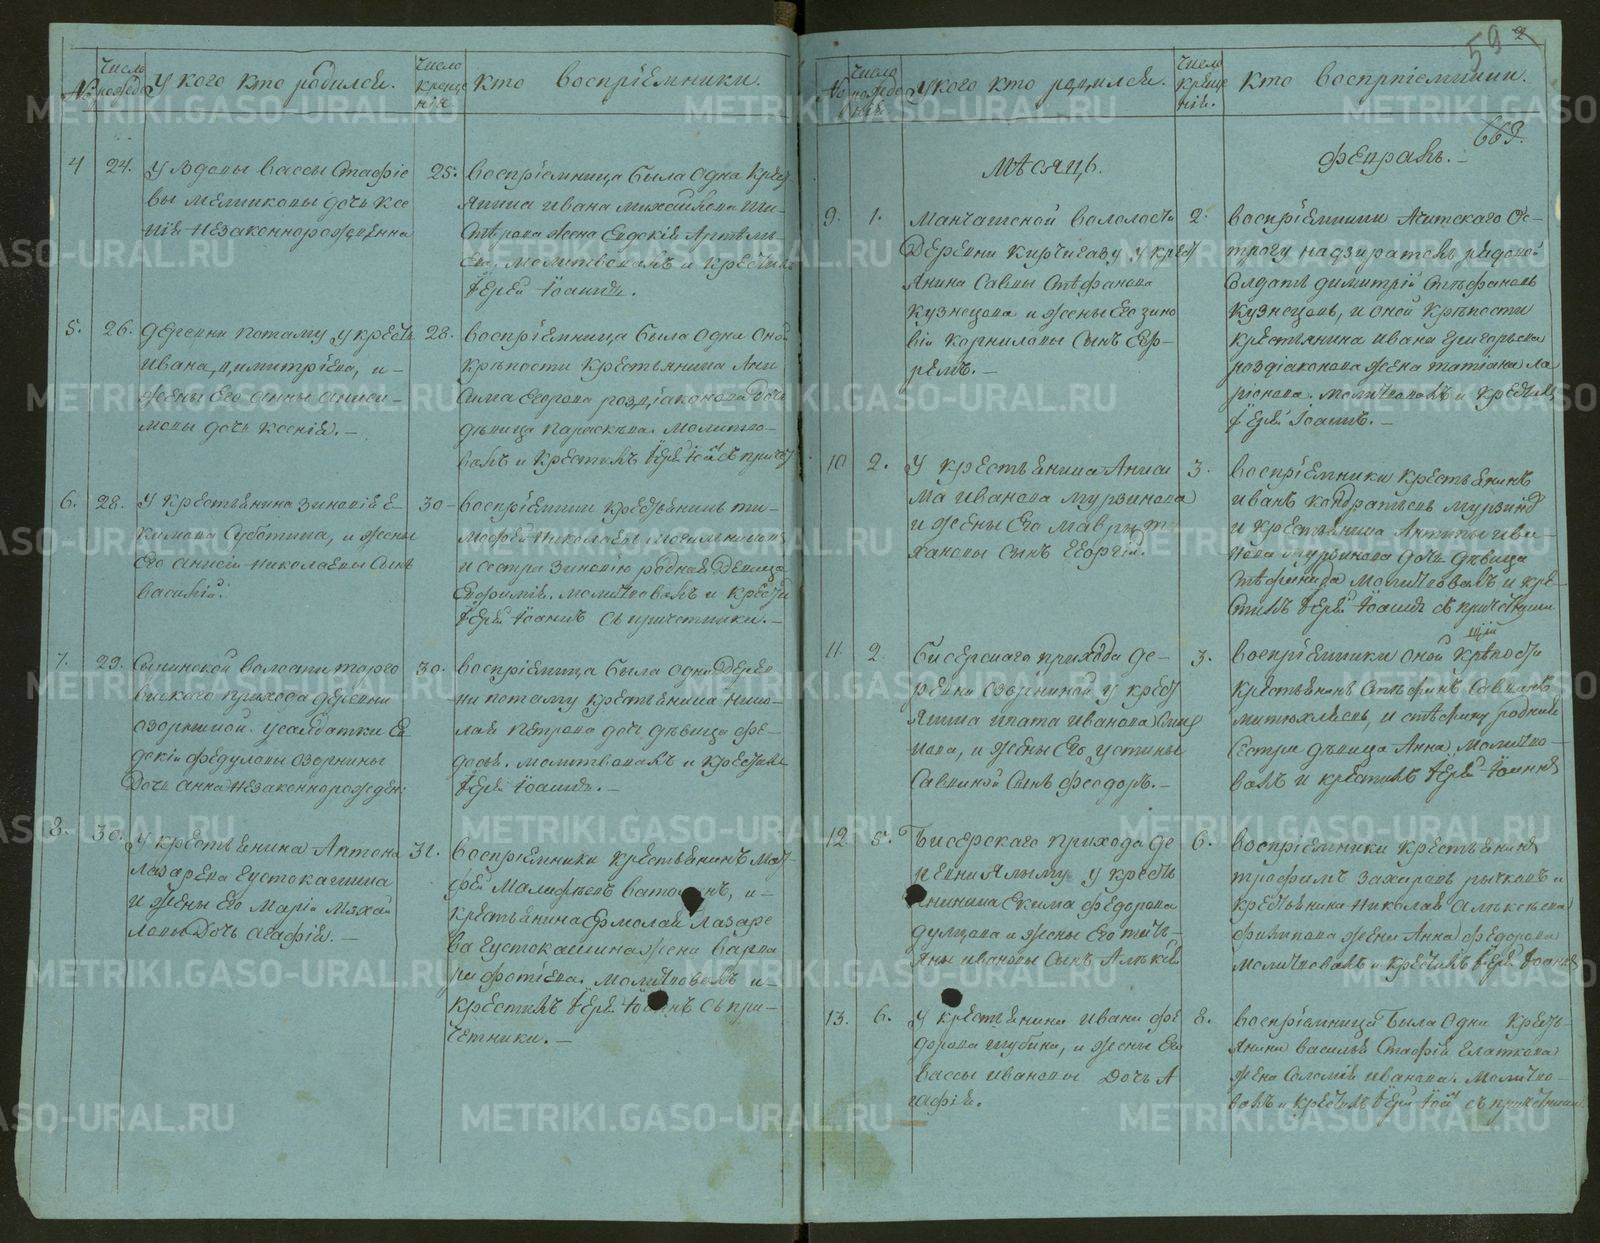 №
Число рожде
У кого кто родился.
Число креще нія
кто воспріемники.
4
24.
У вдовы вассы Стафіе
вы мелниковы дочь Ксе
нія незаконнорожденна
25.
воспріемница была одна крест
янина ивана михайлова
жена Евдокія Артемь
ева. молитвовалъ и крестилъ
Іерей Іоаннъ.
5.
26.
деревни потаму у кресть
ивана димитріева, и
жены его анны аниси-
мовы дочь ксенія.
28.
воспріемница была одна оной
крѣпости крестьянина Ани
сима Егорова роздіаконова дочь
дѣвица параскѣва. молитво-
валъ и крестилъ Іерей Іоан съ причет
6.
28.
У крестьянина зиновія е-
кимова Суботина, и жены
его анисіи николаевы сынъ
василій.
30
воспріемники крестьянинъ ти-
мофей николаевъ
и сестра зиновію родная девица
Евфимія. молитвовалъ и крести
Іерей Іоаннъ съ причетники.
7.
29.
волости торго
вискаго прихода деревни
озорниной у салдатки Ев
докіи федуловы озорнины
дочь анна незаконнорожден
30.
воспріемница была одна дерев
ни потаму крестьянина нико-
лая петрова дочь дѣвица фе-
досья. молитвовалъ и крестилъ
Іерей Іоаннъ.
8.
30.
У крестьянина Антона
лазарева густокашина
и жены его маріи миха
ловы дочь агафія.
31.
воспріемники крестьянинъ мат-
фей малафѣевъ ватолинъ, и
крестьянина Ермолая лазаре
ва густокашина жена варва
ра фотіева. молитвовалъ и
крестилъ Іерей Іоаннъ съ при-
четники.
59
663.
№
Число рожде нія
У кого кто родился.
Число креще нія.
кто воспріемники.
мѣсяцъ.
февраль.
9.
1.
манчашской волости
деревни кирчигазу у крест
янина саввы стефанова
кузнецова и жены его зино
віи корниловы сынъ Еф-
ремъ.
2.
воспріемники Ачитскаго ос-
трогу надзиратель рядовой
солдатъ димитрій стефановъ
кузнецовъ, и оной крѣпости
крестьянина ивана григорьева
роздіаконова жена татіана ла
ріонова. молитвовалъ и крестилъ
Іерей Іоаннъ.
10
2.
У крестьянина Аниси
ма иванова мурзинова
и жены его мавры ти
хановы сынъ георгій.
3.
воспріемники крестьянинъ
иванъ кондратьевъ мурзинъ
и крестьянина Антипы ива
нова мурзинова дочь дѣвица
стефанида молитвовалъ и кре-
стилъ Іерей Іоаннъ съ причетники
11.
2
бисерскаго прихода де-
ревни озорниной у крест
янина ипата иванова
нова, и жены его устиньи
саввиной сынъ феодоръ.
3.
воспріемники оной крѣпости
крестьянинъ стефанъ саввинъ
митюхляевъ, и стефану родная
сестра дѣвица анна, молитво-
валъ и крестилъ Іерей Іоаннъ
12
5.
Бисерскаго прихода де
ревни Ялыму у кресть
янина Екима федорова
дулцова и жены его тать-
яны ивановы сынъ Алѣксѣй
6.
воспріемники крестьянинъ
трофимъ захаровъ рычковъ и
крестьянина николая алѣксѣева
филипова жена анна федорова
молитвовалъ и крестилъ Іерей Іоаннъ
13.
6.
У крестьянина ивана фе
дорова шубина, и жены его
вассы ивановы дочь А
гафія.
8.
воспріемница была одна кресть-
янина василья Стафіева глаткова
жена соломія иванова. молитво-
валъ и крестилъ Іерей Іоан съ причетники
METRIKI.GASO-URAL.RU